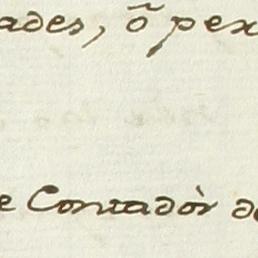 ades, õ pex
e Contadòr de